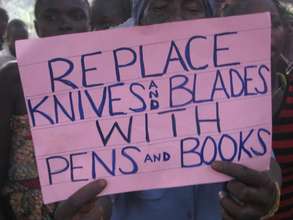 REPLACE
KNIVES AND BLADES
WITH
PENS AND BOOKS